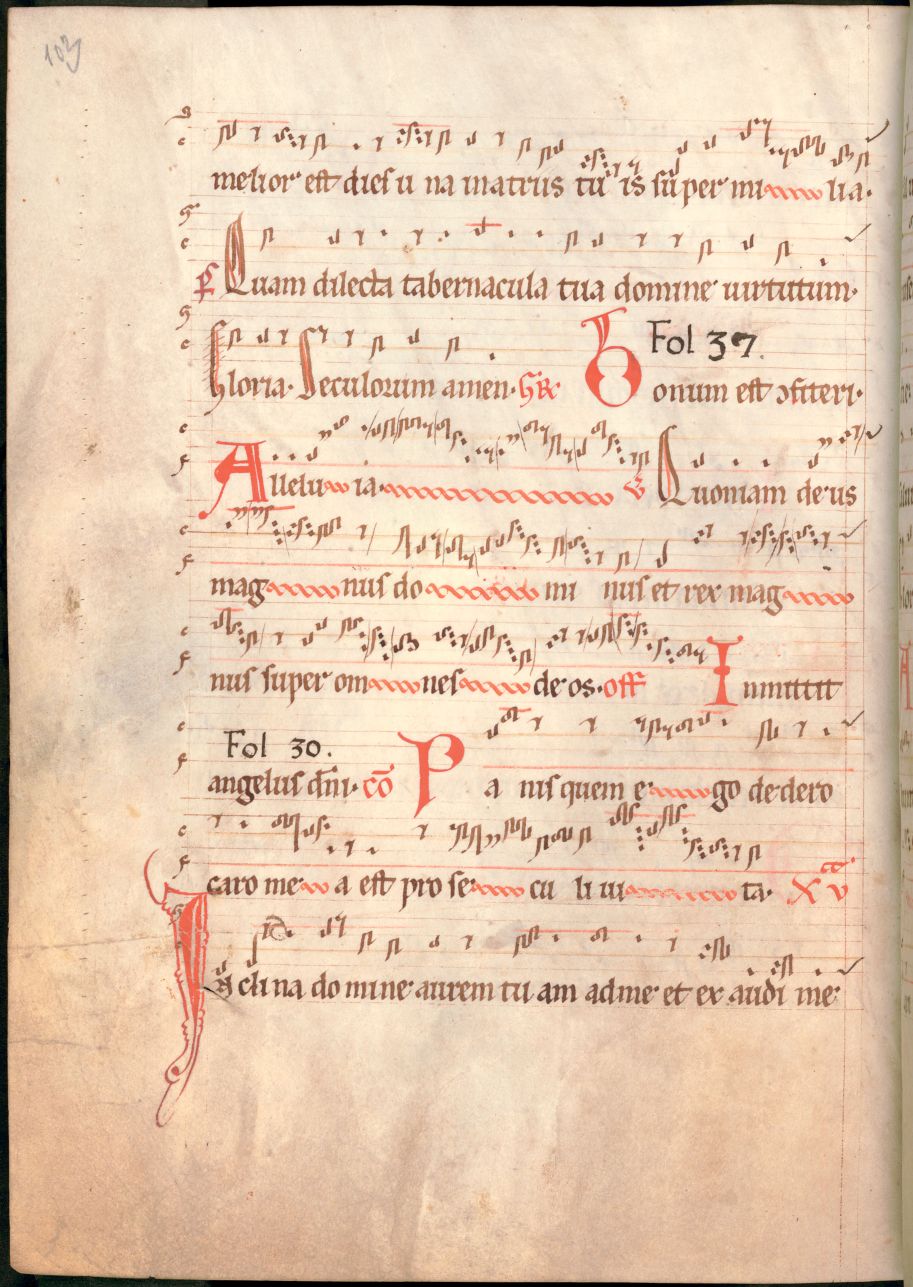 103
melior est dies u na in atriis tu is su per mi lia.
ps Quam dilecta tabernacula tua domine uirtutum.
Fol 37.
Gloria. Seculorum amen. GR Bonum est ɔfiteri.
Allelu ia. V Quoniam deus
mag nus do mi nus et rex mag
nus super om nes de os. off Inmittit
Fol 30.
angelus dñi. cō Pa nis quem e go de dero
caro me a est pro se cu li ui ta. XV
In cli na do mine aurem tu am ad me et ex audi me